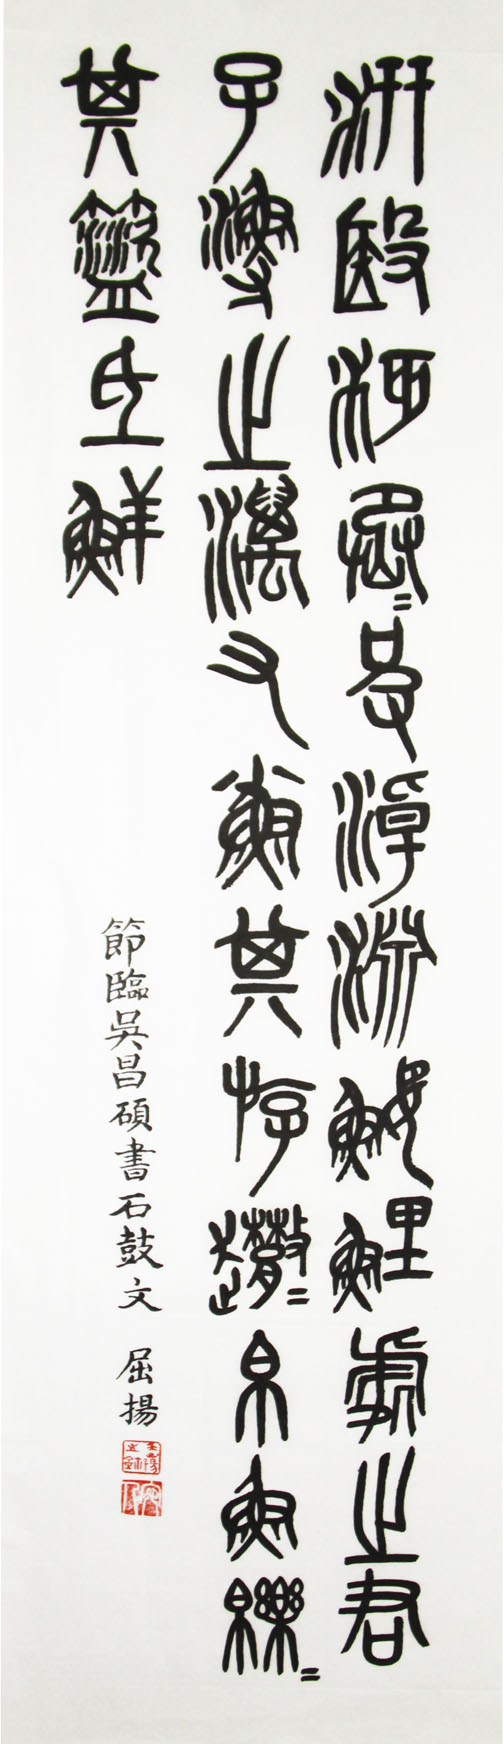 汧殹沔丞皮淖淵鰋鯉處之君
子漁之澫又小魚其斿帛魚皪
其氐鮮
節臨吳昌碩書石鼓文 屈揚